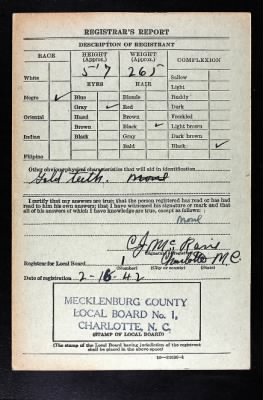 REGISTRAR'S REPORT
DESCRIPTION OF REGISTRANT
RACE HEIGHT (Approx.) WEIGHT (Approx.) COMPLEXION
5'7 265
White EYES HAIR Sallow
Light ✓
Negro ✓ Blue Blonde Ruddy
Gray ✓ Red Dark
Oriental Hazel Brown Freckled
Brown Black ✓ Light brown
Indian Black Gray Dark brown
Bald Black ✓
Filipino
Other obvious physical characteristics that will aid in identification
Gold teeth. None
I certify that my answers are true; that the person registered has read or has had
read to him his own answers; that I have witnessed his signature or mark and that
all of his answers of which I have knowledge are true, except as follows:
None
C J Mc
Registrar for Local Board 1 Charlotte N.C.
(Number) (City or county) (State)
Date of registration 2-16-42
MECKLENBURG COUNTY
LOCAL BOARD No. 1,
CHARLOTTE, N. C.
(STAMP OF LOCAL BOARD)
(The stamp of the Local Board having jurisdiction of the registrant
shall be placed in the above space)